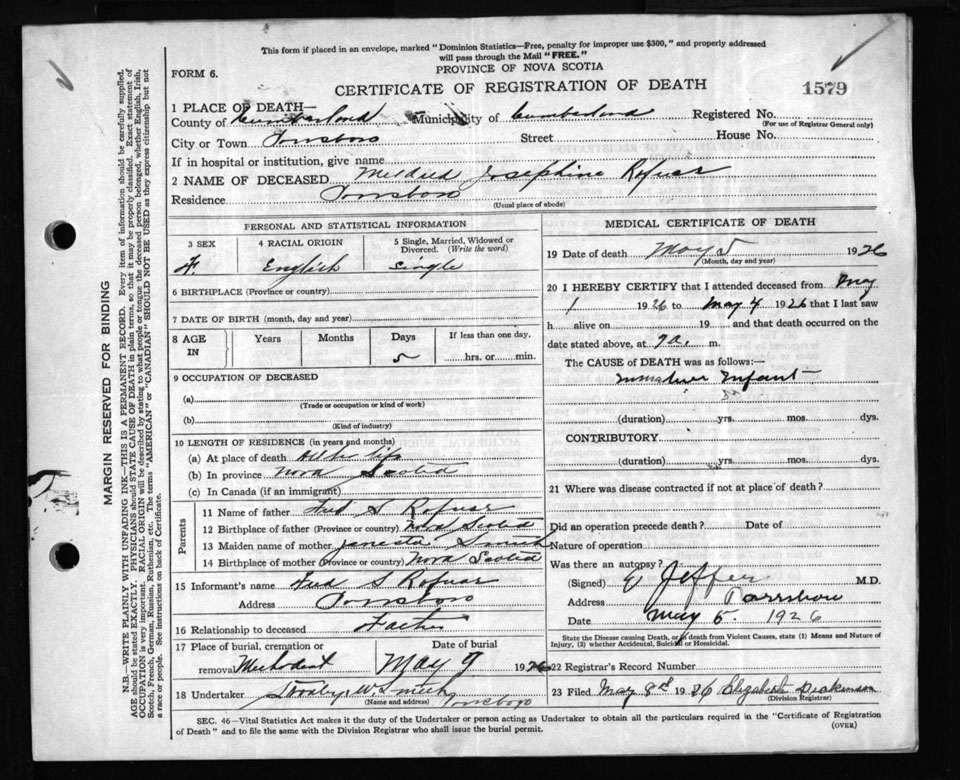 This form if placed in an envelope, marked "Dominion Statistics—Free, penalty for improper use $300," and properly addressed
will pass through the Mail "FREE."
PROVINCE OF NOVA SCOTIA
FORM 6.
CERTIFICATE OF REGISTRATION OF DEATH
1579
1 PLACE OF DEATH—
County of Cumberland Municipality of Cumberland Registered No.
(For use of Registrar General only)
City or Town Parrsboro Street House No.
If in hospital or institution, give name
2 NAME OF DECEASED Mildred Josephine
Residence Parrsboro
(Usual place of abode)
PERSONAL AND STATISTICAL INFORMATION
3 SEX 4 RACIAL ORIGIN 5 Single, Married, Widowed or Divorced. (Write the word)
F English Single
6 BIRTHPLACE (Province or country)
7 DATE OF BIRTH (month, day and year)
8 AGE IN Years Months Days If less than one day,
5 hrs. or min.
9 OCCUPATION OF DECEASED
(a)
(Trade or occupation or kind of work)
(b)
(Kind of industry)
10 LENGTH OF RESIDENCE (in years and months)
(a) At place of death life
(b) In province Nova Scotia
(c) In Canada (if an immigrant)
Parents
11 Name of father Fred S
12 Birthplace of father (Province or country) Nova Scotia
13 Maiden name of mother
14 Birthplace of mother (Province or country) Nova Scotia
15 Informant's name Fred S
Address Parrsboro
16 Relationship to deceased Father
17 Place of burial, cremation or removal Methodist
Date of burial
May 9 1926
18 Undertaker W Smith Parrsboro
(Name and address)
MEDICAL CERTIFICATE OF DEATH
19 Date of death May 5 1926
(Month, day and year)
20 I HEREBY CERTIFY that I attended deceased from May
1 1926 to May 4 1926 that I last saw
h alive on 19 and that death occurred on
date stated above, at 9 a. m.
The CAUSE of DEATH was as follows:—
Infant
(duration) yrs. mos. dys.
CONTRIBUTORY
(duration) yrs. mos. dys.
21 Where was disease contracted if not at place of death?
Did an operation precede death? Date of
Nature of operation
Was there an autopsy?
(Signed) M.D.
Address Parrsboro
Date May 5 1926
State the Disease causing Death, or in death from Violent Causes, state (1) Means and Nature of
Injury, (2) whether Accidental, Suicidal or Homicidal.
22 Registrar's Record Number
23 Filed May 8th 1926 Elizabeth Dickinson
(Division Registrar)
SEC. 46—Vital Statistics Act makes it the duty of the Undertaker or person acting as Undertaker to obtain all the particulars required in the "Certificate of Registration
of Death" and to file the same with the Division Registrar who shall issue the burial permit.
(OVER)
MARGIN RESERVED FOR BINDING
N.B.—WRITE PLAINLY WITH UNFADING INK—THIS IS A PERMANENT RECORD. Every item of information should be carefully supplied.
AGE should be stated EXACTLY. PHYSICIANS should STATE CAUSE OF DEATH in plain terms, so that it may be properly classified. Exact statement of
OCCUPATION is very important. RACIAL ORIGIN will be described by stating to what people or tongue the deceased person belonged, whether English, Irish,
Scotch, French, German, Russian, Ruthenian, etc. The terms "AMERICAN" or "CANADIAN" SHOULD NOT BE USED as they express citizenship but not
a race or people. See instructions on back of Certificate.